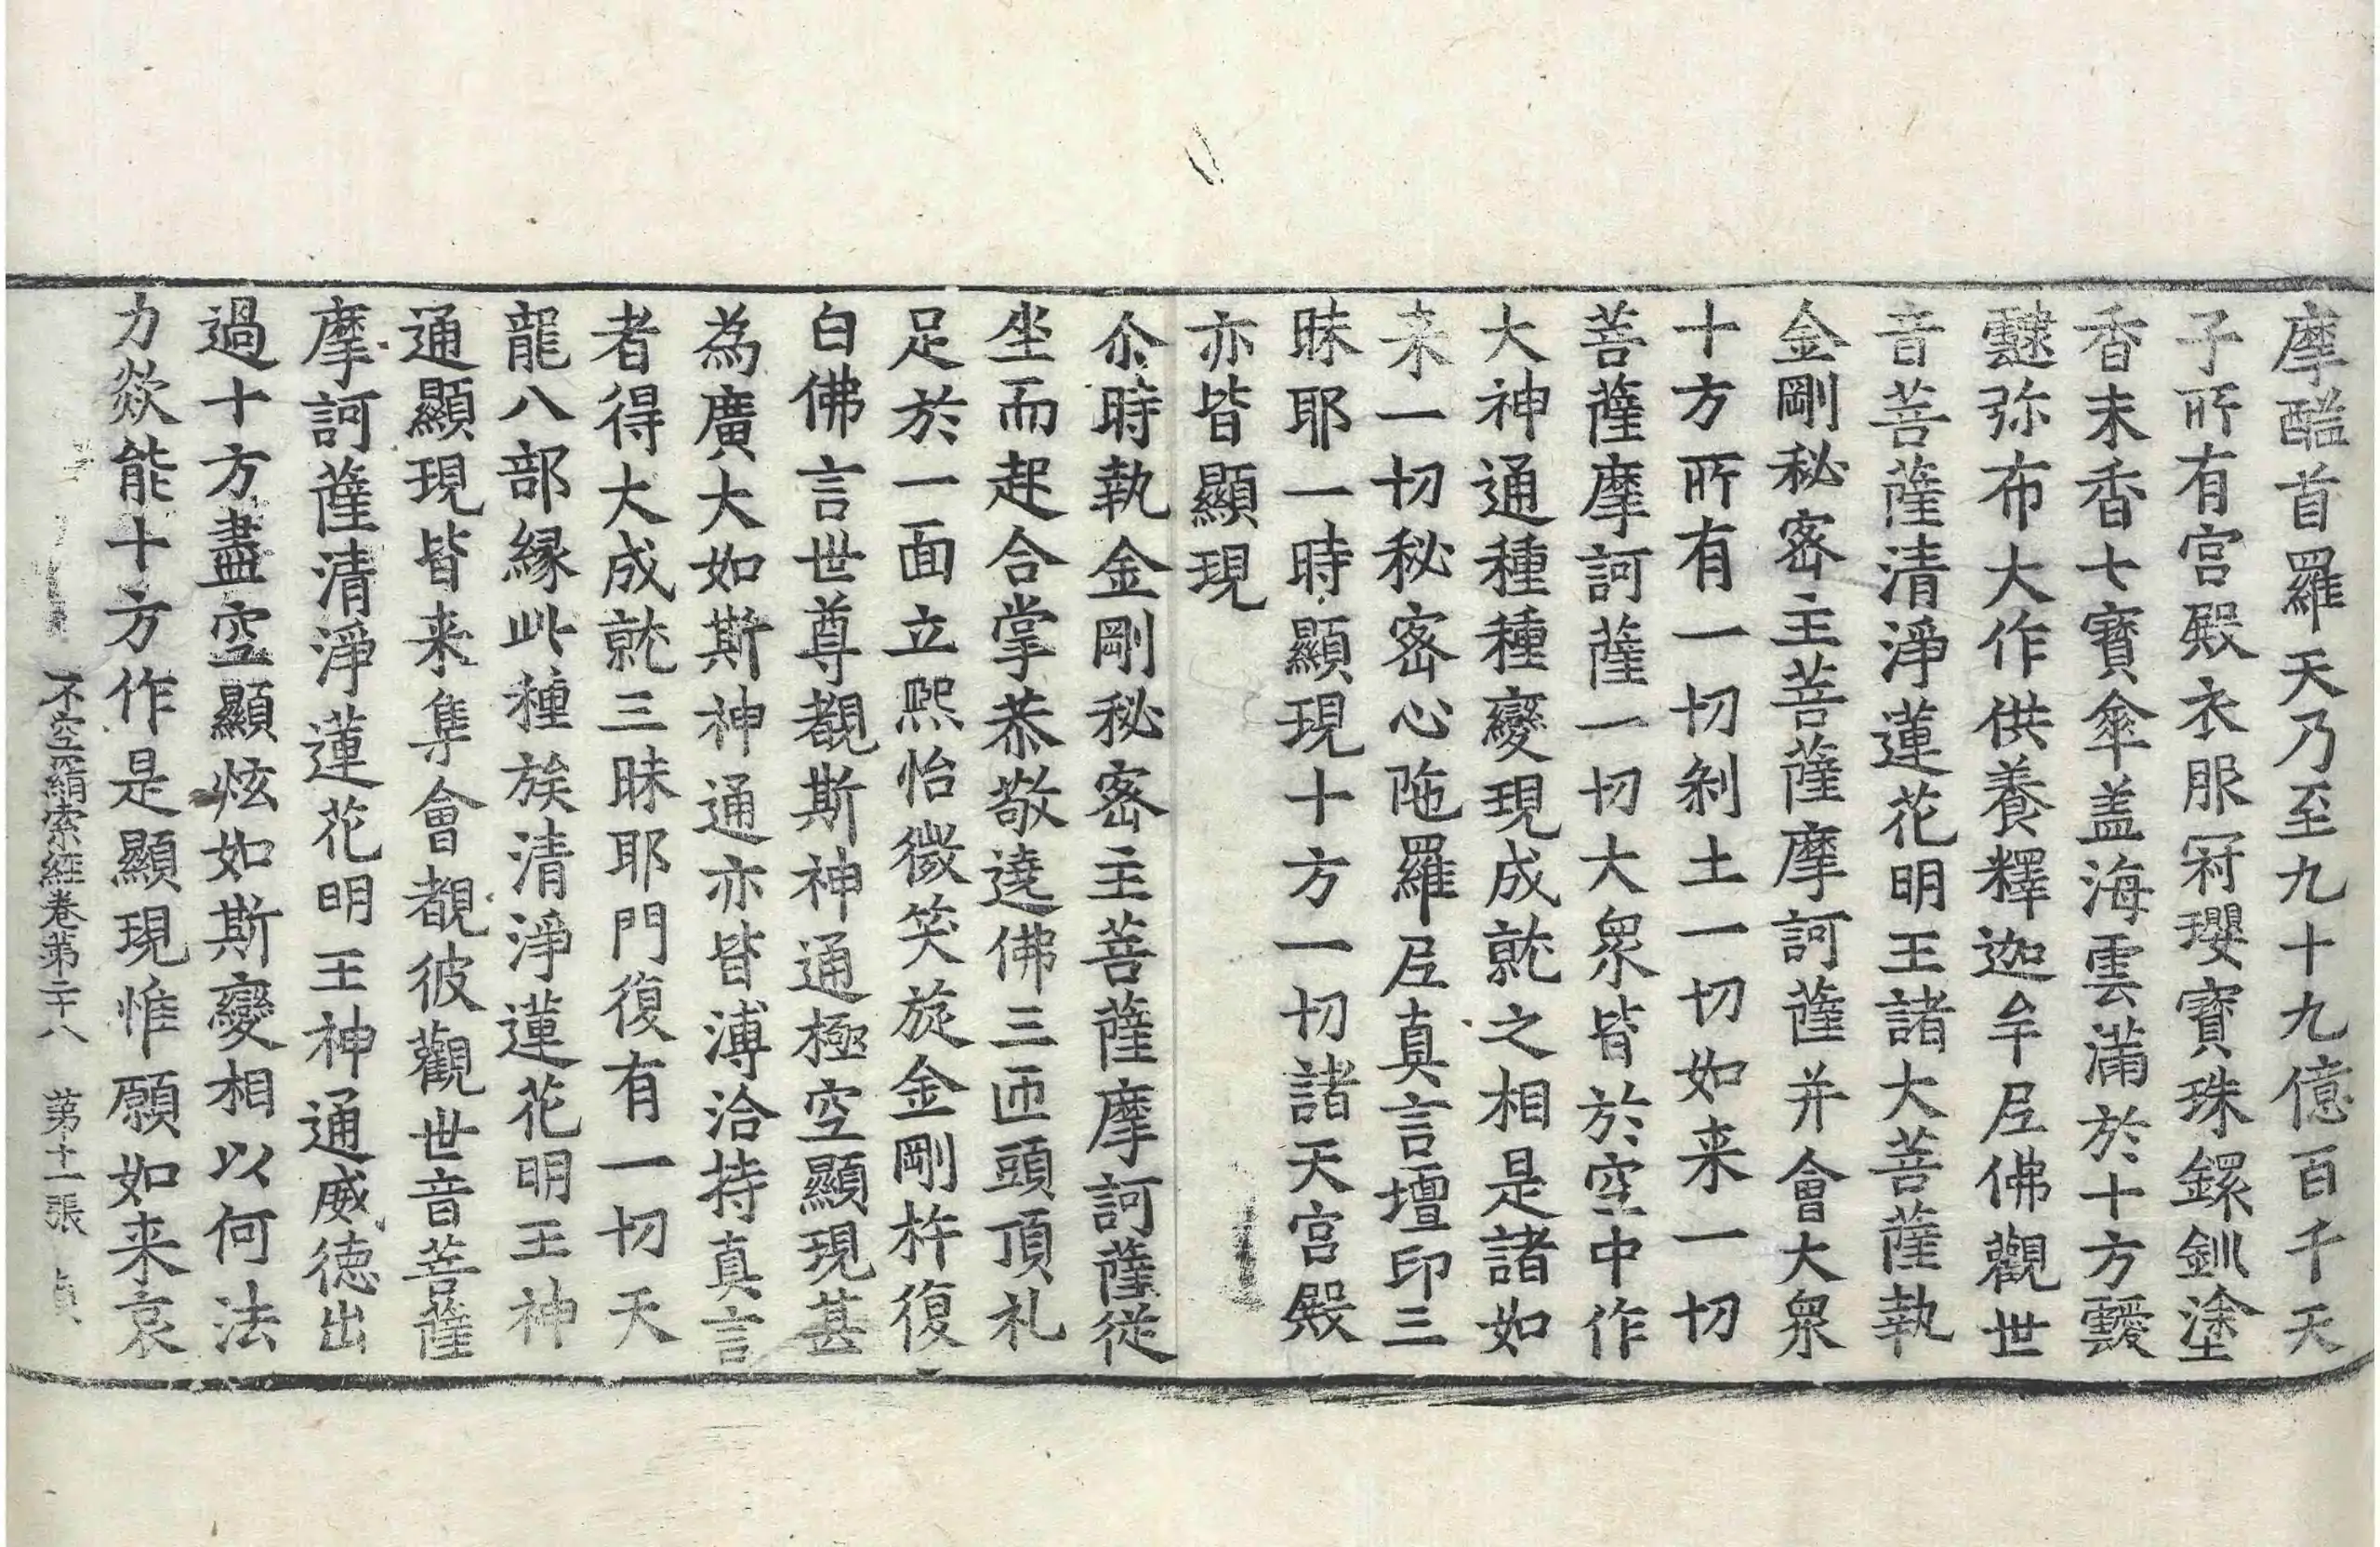 摩醯首羅天乃至九十九億百千天
子所有宮殿衣服冠瓔寶珠鐶釧塗
香末香七寶傘盖海雲滿於十方靉
靆弥布大作供養釋迦牟尼佛觀世
音菩薩清淨蓮花明王諸大菩薩執
金剛秘密主菩薩摩訶薩并會大衆
十方所有一切剎土一切如来一切
菩薩摩訶薩一切大衆皆於空中作
大神通種種變現成就之相是諸如
来一切秘密心陁羅尼真言壇印三
昧耶一時顯現十方一切諸天宮殿
亦皆顯現
尒時執金剛秘密主菩薩摩訶薩從
坐而起合掌恭敬遶佛三匝頭頂礼
足於一面立熙怡微笑旋金剛杵復
白佛言世尊覩斯神通極空顯現甚
為廣大如斯神通亦皆溥洽持真言
者得大成就三昧耶門復有一切天
龍八部緣此種族清淨蓮花明王神
通顯現皆来集會覩彼觀世音菩薩
摩訶薩清淨蓮花明王神通威德出
過十方盡空顯炫如斯變相以何法
力欻能十方作是顯現惟願如来哀
不空羂索經卷第二十八 第十一張 貞